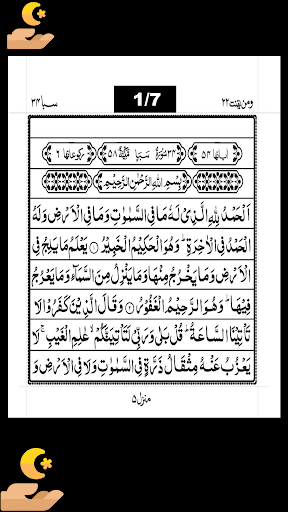 سبا ٣٤
1/7
ومن یقنت ٢٢
اٰیاتها ٥٤ ٣٤ سُوْرَةُ سَبَاٍ مَكِّیَّةٌ ٥٨ رکوعاتها ٦
بِسْمِ اللّٰهِ الرَّحْمٰنِ الرَّحِیْمِ
اَلْحَمْدُ لِلّٰهِ الَّذِیْ لَهٗ مَا فِی السَّمٰوٰتِ وَمَا فِی الْاَرْضِ وَلَهُ
الْحَمْدُ فِی الْاٰخِرَةِ ؕ وَهُوَ الْحَكِیْمُ الْخَبِیْرُ ۝١ یَعْلَمُ مَا یَلِجُ فِی
الْاَرْضِ وَمَا یَخْرُجُ مِنْهَا وَمَا یَنْزِلُ مِنَ السَّمَآءِ وَمَا یَعْرُجُ
فِیْهَا ؕ وَهُوَ الرَّحِیْمُ الْغَفُوْرُ ۝٢ وَقَالَ الَّذِیْنَ كَفَرُوْا لَا
تَاْتِیْنَا السَّاعَةُ ؕ قُلْ بَلٰی وَرَبِّیْ لَتَاْتِیَنَّكُمْ ۙ عٰلِمِ الْغَیْبِ ۚ لَا
یَعْزُبُ عَنْهُ مِثْقَالُ ذَرَّةٍ فِی السَّمٰوٰتِ وَلَا فِی الْاَرْضِ وَ
منزل ٥